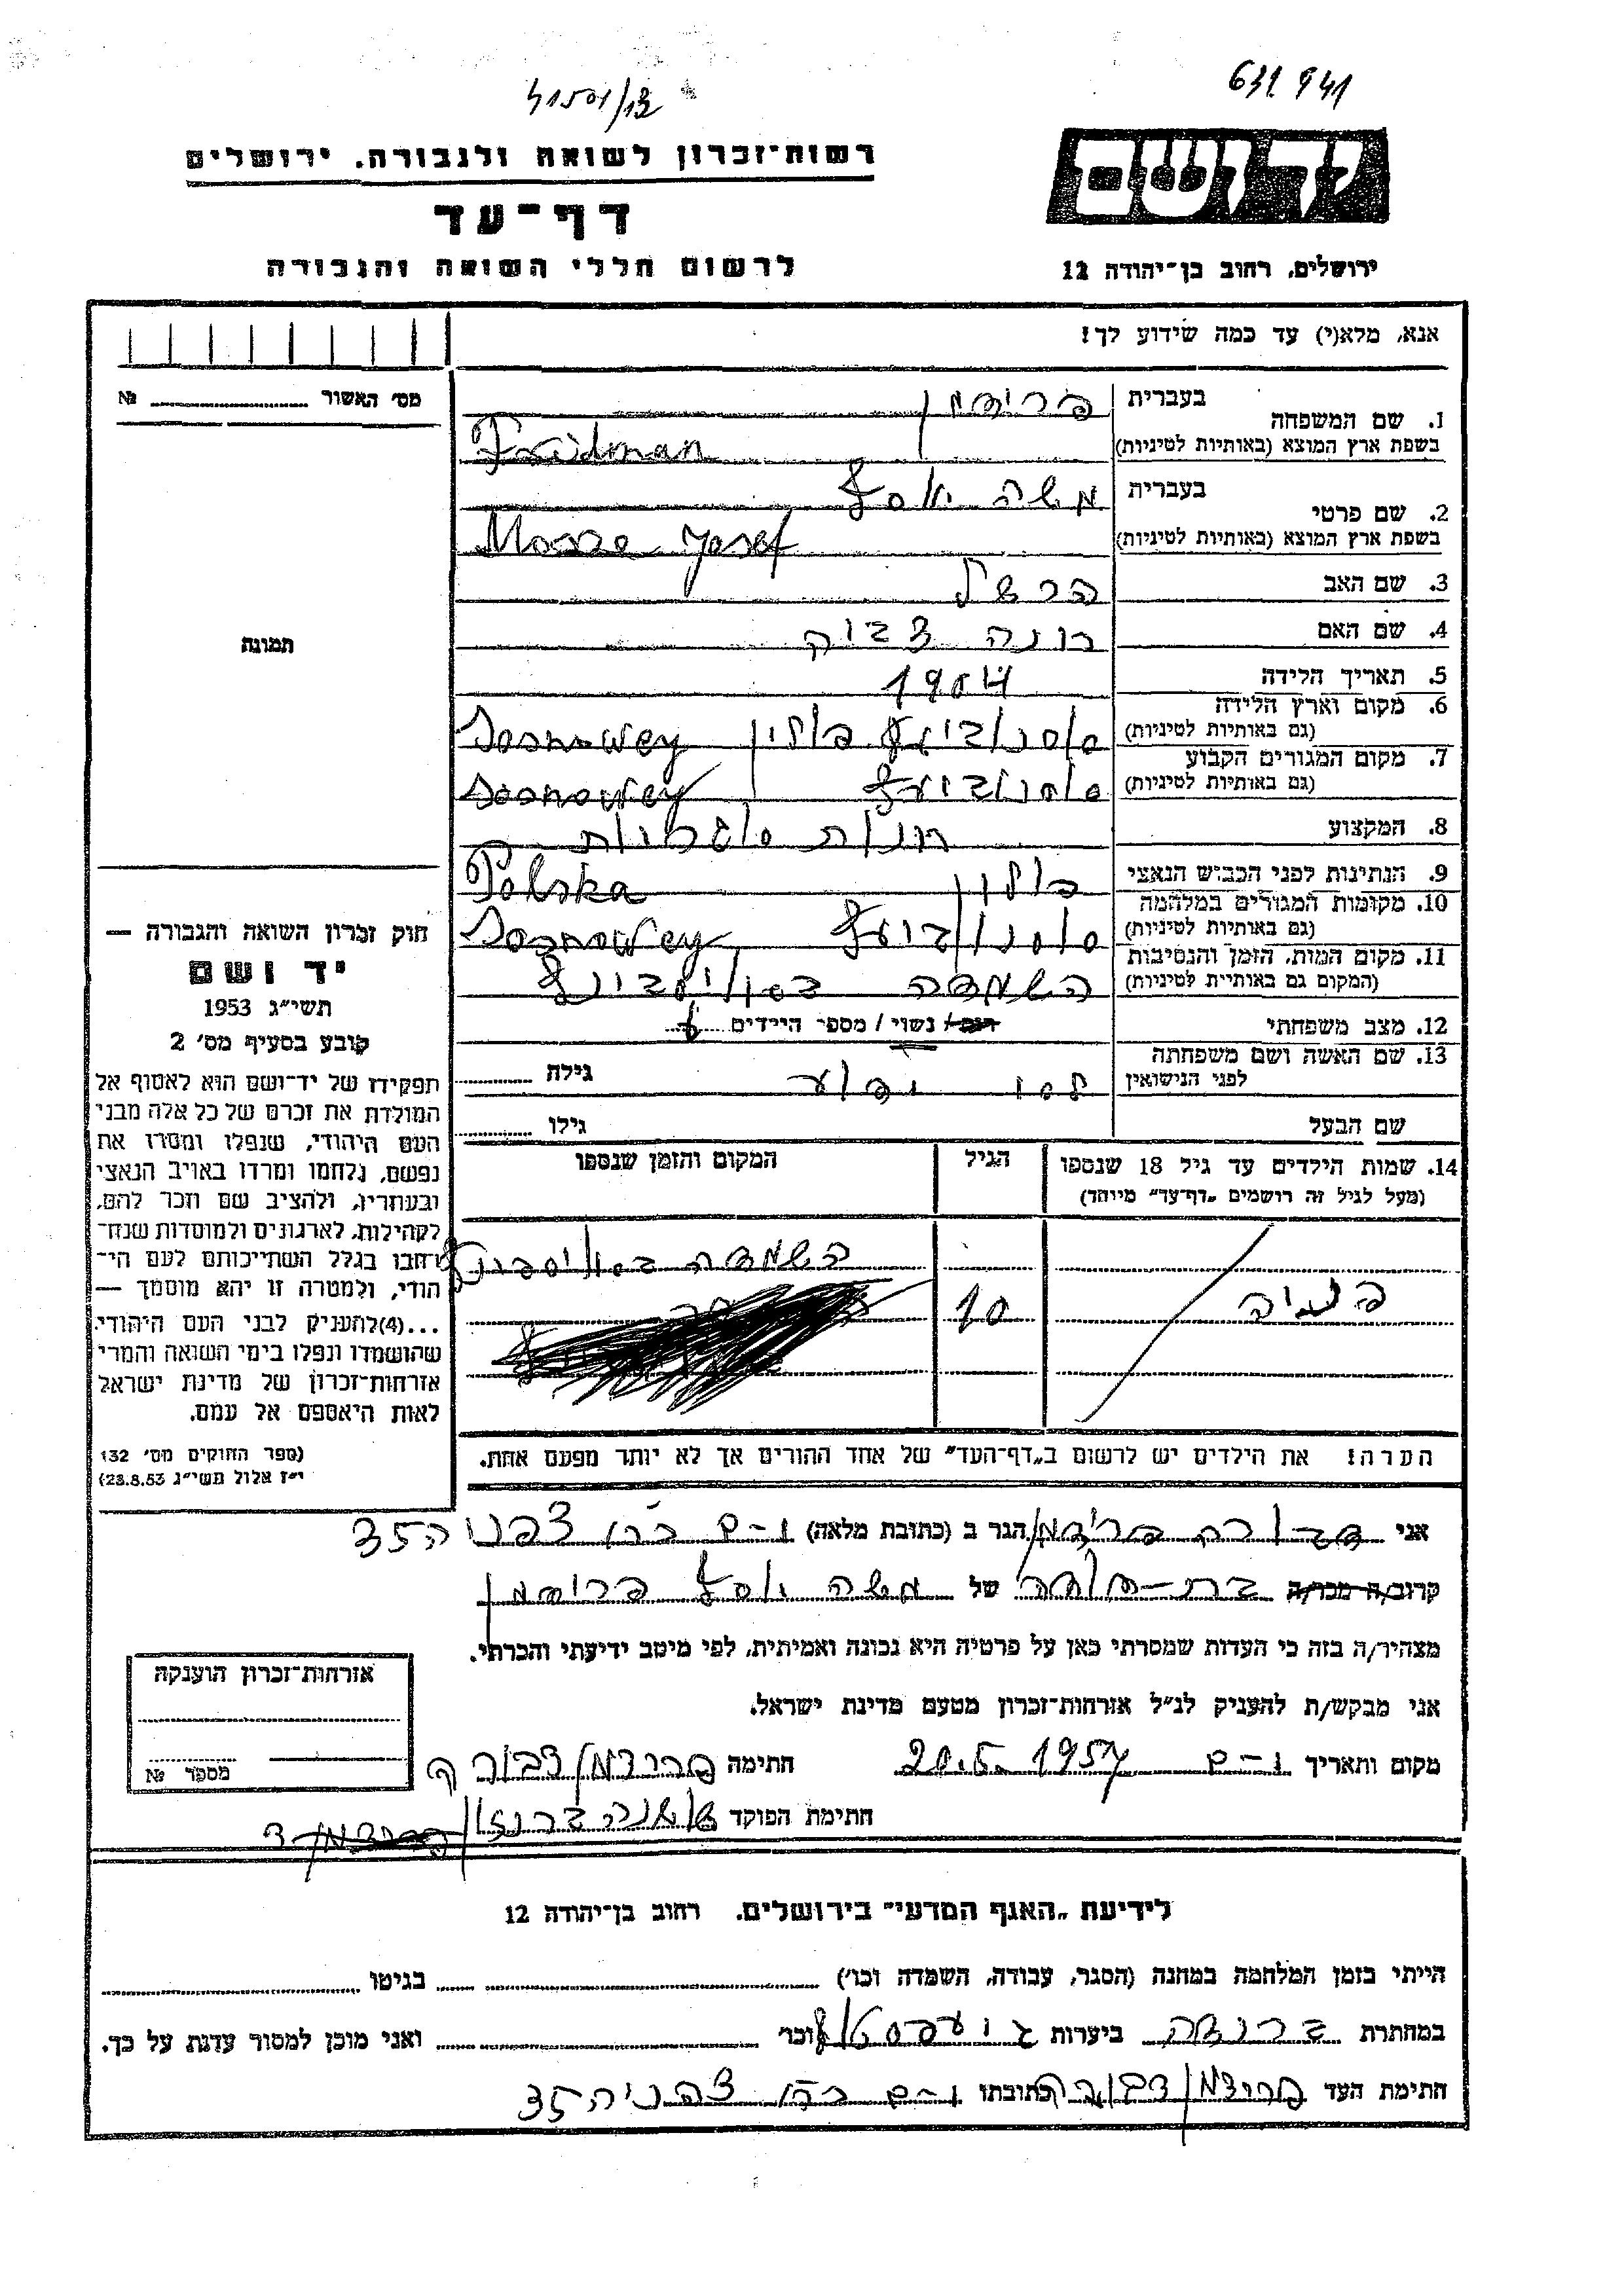 631941
41501/13
ידושם
רשות־זכרון לשואה ולגבורה. ירושלים
דף־עד
לרשום חללי השואה והגבורה
ירושלים, רחוב בן־יהודה 12
אנא, מלא(י) עד כמה שידוע לך!
מס׳ האשור № 
1. שם המשפחה בעברית פרידמן
בשפת ארץ המוצא (באותיות לטיניות) Fridman
2. שם פרטי בעברית משה יוסף
בשפת ארץ המוצא (באותיות לטיניות) Mosze Josef
3. שם האב הרשל
4. שם האם
5. תאריך הלידה 1904
6. מקום וארץ הלידה (גם באותיות לטיניות) סוסנוביעץ פולין Sosnowey
7. מקום המגורים הקבוע (גם באותיות לטיניות) סוסנוביעץ Sosnowey
8. המקצוע חנות
9. הנתינות לפני הכבוש הנאצי פולין Polska
10. מקומות המגורים במלחמה (גם באותיות לטיניות) סוסנוביעץ Sosnowey
11. מקום המות, הזמן והנסיבות (המקום גם באותיית לטיניות) השמדה
12. מצב משפחתי רוק/ נשוי / מספר הילדים
13. שם האשה ושם משפחתה לפני הנישואין גילה
שם הבעל גילו
14. שמות הילדים עד גיל 18 שנספו
(מעל לגיל זה רושמים „דף־עד״ מייוחד)
הגיל
המקום והזמן שנספו
השמדה
10
הערה! את הילדים יש לרשום ב„דף־העד״ של אחד ההורים אך לא יותר מפעם אחת.
תמונה
חוק זכרון השואה והגבורה —
יד ושם
תשי״ג 1953
קובע בסעיף מס׳ 2
תפקידו של יד־ושם הוא לאסוף אל
המולדת את זכרם של כל אלה מבני
העם היהודי, שנפלו ומסרו את
נפשם, נלחמו ומרדו באויב הנאצי
ובעוזריו, ולהציב שם וזכר להם,
לקהילות, לארגונים ולמוסדות שנח־
רחבו בגלל השתייכותם לעם הי־
הודי, ולמטרה זו יהא מוסמך —
...(4)להעניק לבני העם היהודי
שהושמדו ונפלו בימי השואה והמרי
אזרחות־זכרון של מדינת ישראל
לאות היאספם אל עמם.
(ספר החוקים מס׳ 132
י״ז אלול תשי״ג 28.8.53)
אני דבורה פרידמן הגר ב (כתובת מלאה) י־ם 35
קרוב/ה מכר/ה של משה יוסף פרידמן
מצהיר/ה בזה כי העדות שמסרתי כאן על פרטיה היא נכונה ואמיתית, לפי מיטב ידיעתי והכרתי.
אני מבקש/ת להעניק לנ״ל אזרחות־זכרון מטעם מדינת ישראל.
מקום ותאריך י־ם 20.5.1957 חתימה פרידמן דבורה
חתימת הפוקד
אזרחות־זכרון הוענקה
מספר №
לידיעת „האגף המדעי״ בירושלים. רחוב בן־יהודה 12
הייתי בזמן המלחמה במחנה (הסגר, עבודה, השמדה וכו׳) בגיטו
במחתרת ביערות וכו׳ ואני מוכן למסור עדות על כך.
חתימת העד פרידמן דבורה כתובתו י־ם 35